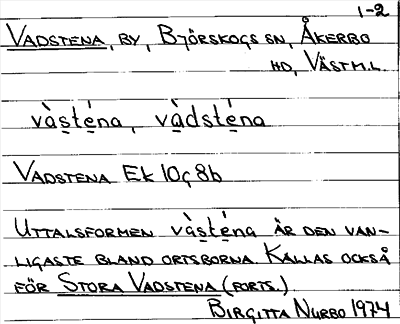 1-2
VADSTENA, BY, BJÖRSKOGS SN, ÅKERBO
HD, VÄSTM.L.
vàs̱té̱na, vàdsté̱na
VADSTENA EK 10G 8b
UTTALSFORMEN vàs̱té̱na ÄR DEN VAN-
LIGASTE BLAND ORTSBORNA. KALLAS OCKSÅ
FÖR STORA VADSTENA (FORTS.)
BIRGITTA NURBO 1974